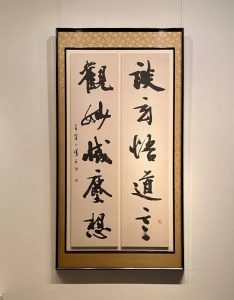 談玄悟道言
觀妙滅塵想